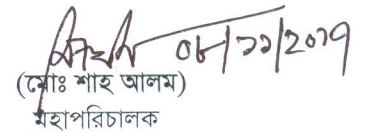 ০৮/১১/২০১৭
(মোঃ শাহ আলম)
মহাপরিচালক